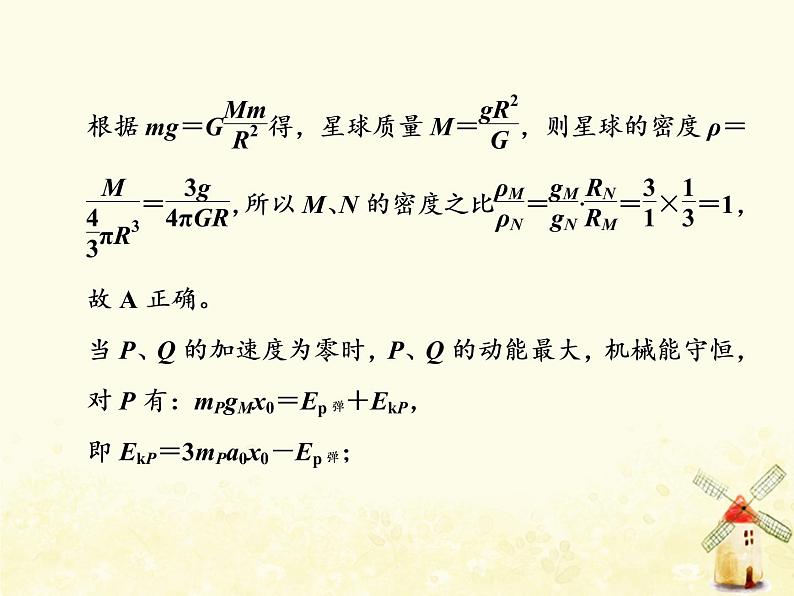 根据 mg＝G\frac{Mm}{R^2}得，星球质量 M＝\frac{gR^2}{G}，则星球的密度 ρ＝
\frac{M}{\frac{4}{3}πR^3}＝\frac{3g}{4πGR}，所以 M、N 的密度之比\frac{ρ_M}{ρ_N}＝\frac{g_M}{g_N}·\frac{R_N}{R_M}＝\frac{3}{1}×\frac{1}{3}＝1，
故 A 正确。
当 P、Q 的加速度为零时，P、Q 的动能最大，机械能守恒，
对 P 有：m_Pg_Mx_0＝E_{p弹}＋E_{kP}，
即 E_{kP}＝3m_Pa_0x_0－E_{p弹}；